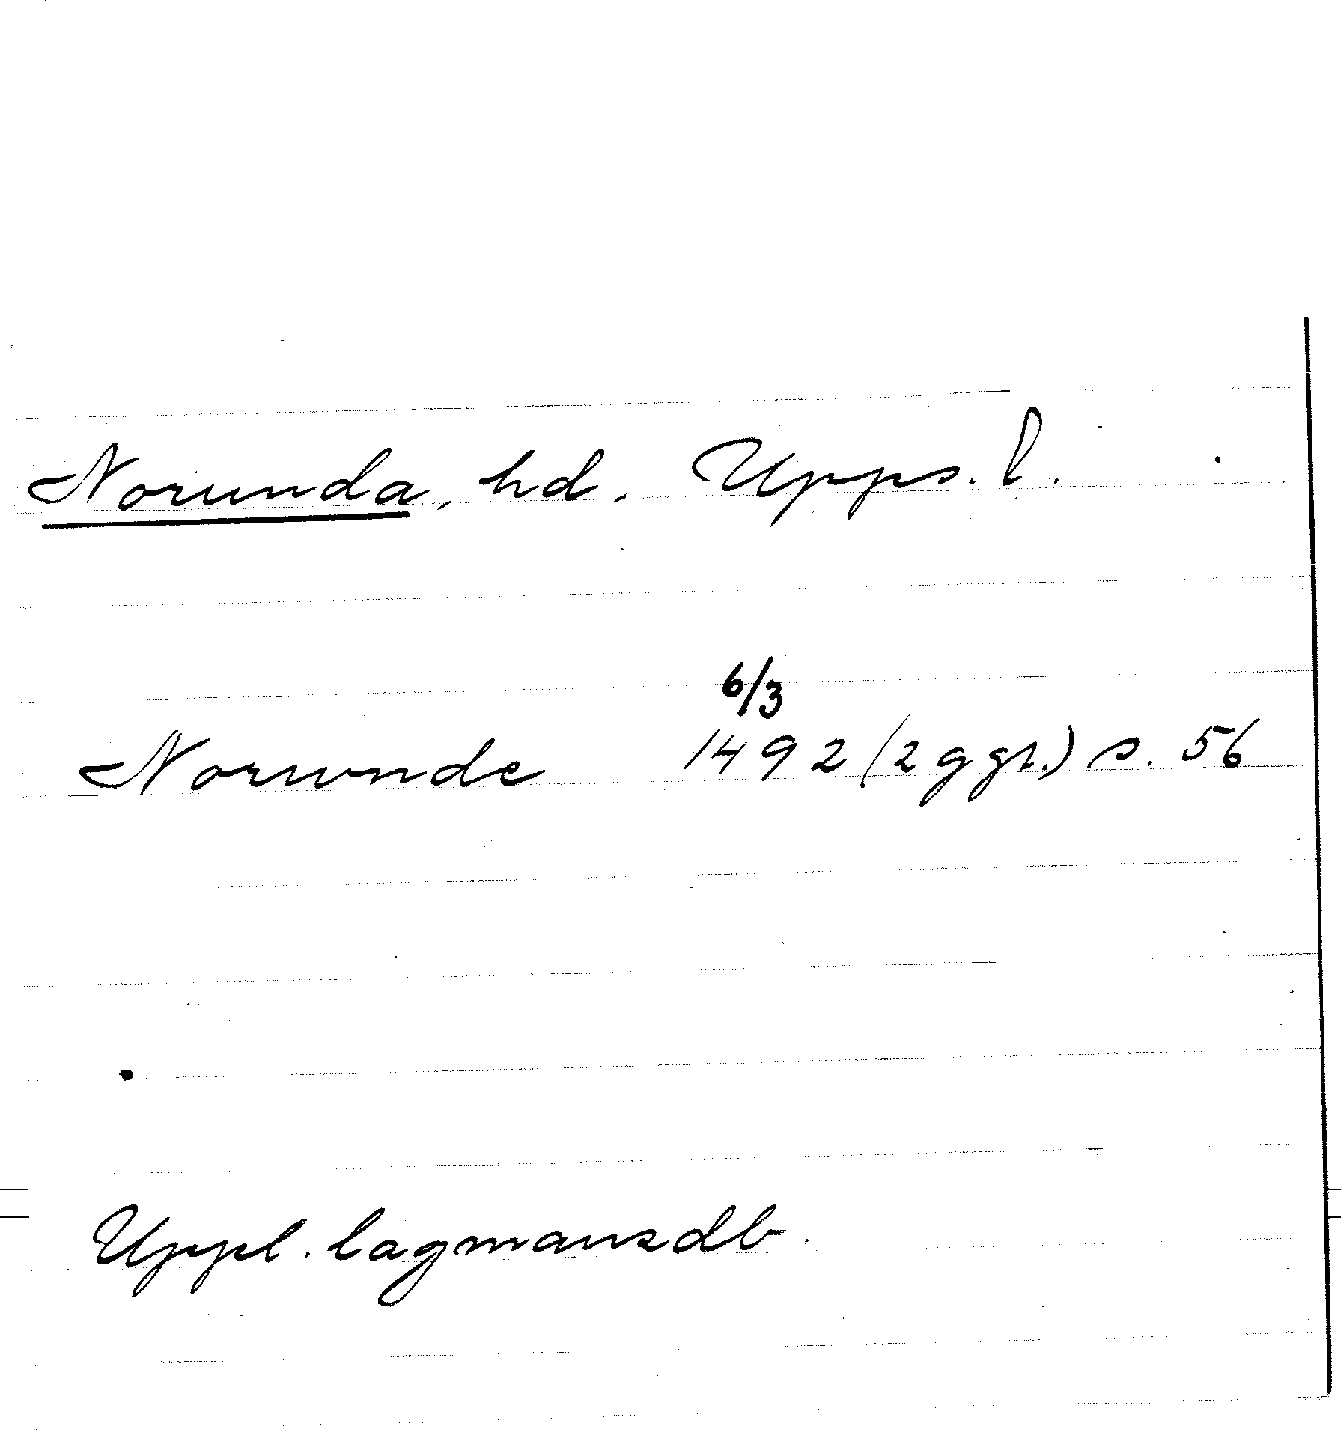 Norunda, hd. Upps. l.
6/3
Norunde 1492 (2 ggr.) s. 56
Uppl. lagmansdb.